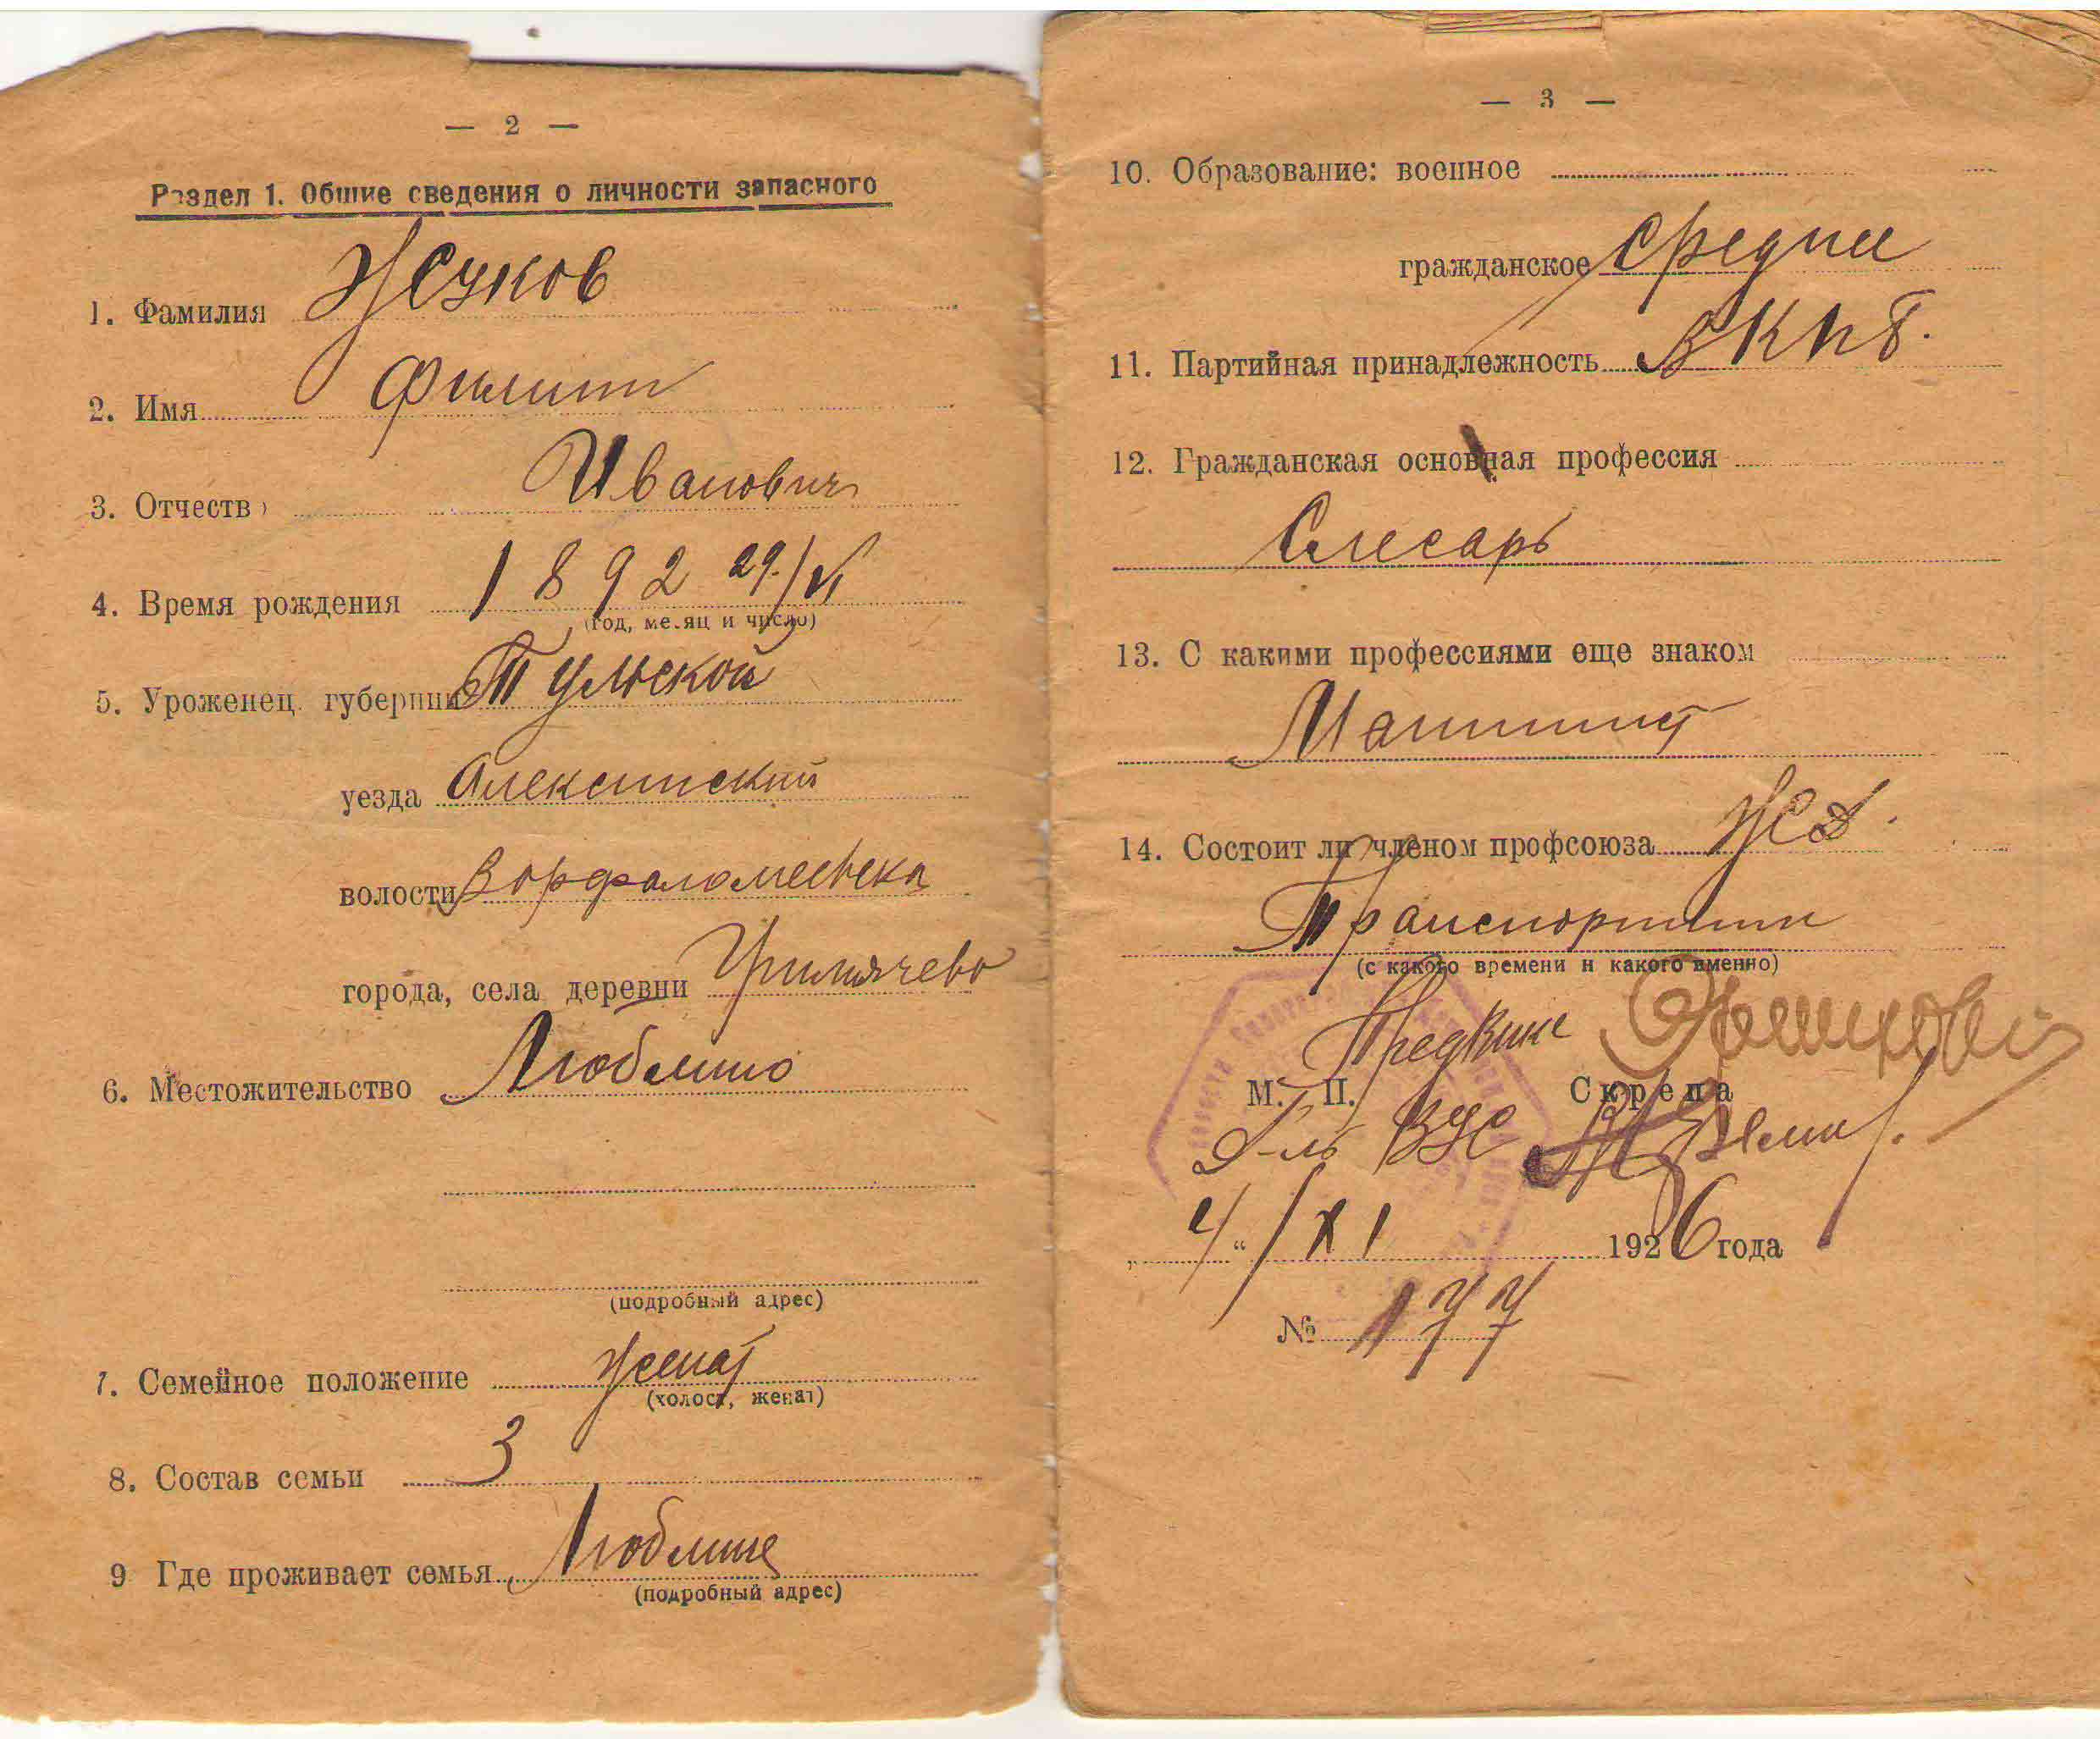 — 2 —
Раздел 1. Общие сведения о личности запасного
1. Фамилия Жуков
2. Имя Филипп
3. Отчество Иванович
4. Время рождения 1892 29/VI
(год, месяц и число)
5. Уроженец губернии Тульской
уезда Алексинский
волости
города, села деревни
6. Местожительство Люблино
(подробный адрес)
7. Семейное положение женат
(холост, женат)
8. Состав семьи 3
9 Где проживает семья Люблине
(подробный адрес)
— 3 —
10. Образование: военное
гражданское средние
11. Партийная принадлежность ВКПб.
12. Гражданская основная профессия
Слесарь
13. С какими профессиями еще знаком
Машинист
14. Состоит ли членом профсоюза ЖД.
(с какого времени и какого именно)
М. П. Скрепа
ВУС
„ 4 “ / XI 1926 года
№ 177